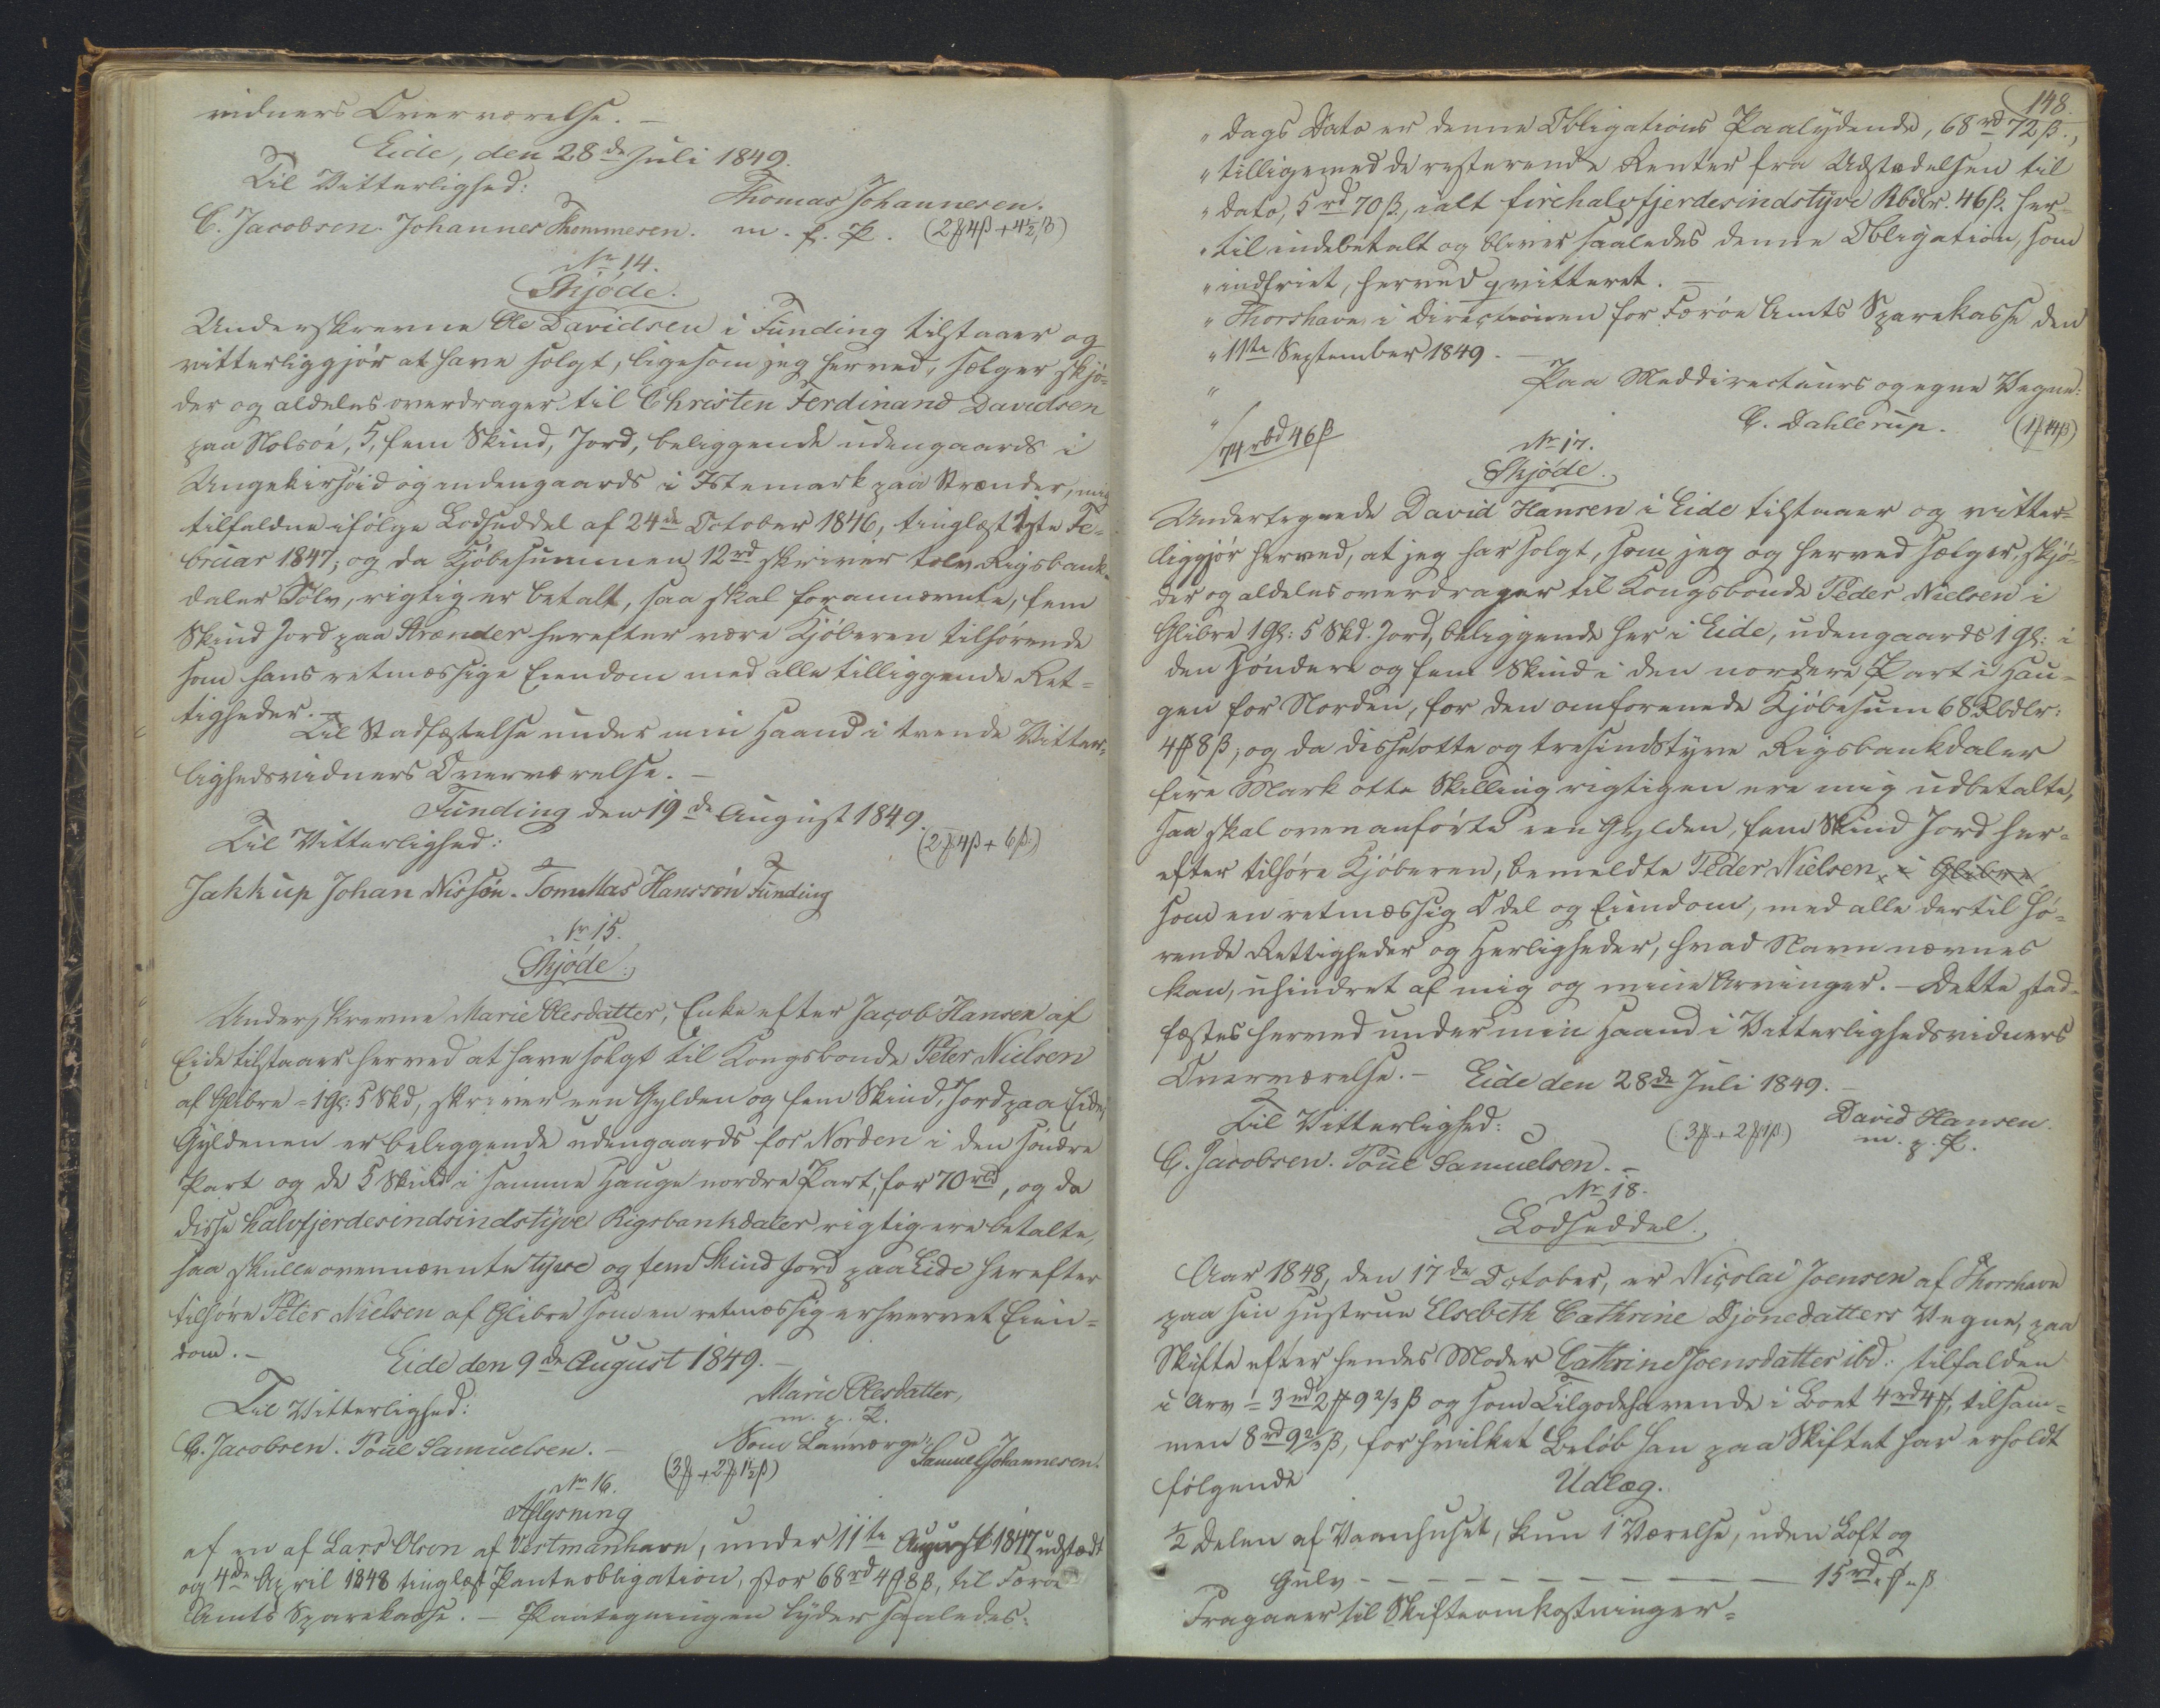 vidners Overværelse. —
Eide, den 28de Juli 1849.
Til Vitterlighed:
Thomas Johannesen.
C. Jacobsen. Johannes Thommesen. m. f. P. (2 ℔ 4 ß + 4½ ß)
No 14.
Skjøde.
Underskrevne Ole Davidsen i Funding tilstaaer og
vitterliggjør at have solgt, ligesom jeg herved, sælger skjø-
der og aldeles overdrager til Christen Ferdinand Davidsen
paa Nolsöe, 5, fem Skind, Jord, beliggende udengaards i
og indengaards i Istemark paa Strænder, mig
tilfaldne ifølge Lodseddel af 24de October 1846, tinglæst 1ste Fe-
bruar 1847; og da Kjøbesummen 12 rd skriver tolv Rigsbank-
daler Sølv, rigtig er betalt, saa skal forannævnte, fem
Skind Jord paa Strænder herefter være Kjøberen tilhørende
som hans retmæssige Eiendom med alle tilliggende Ret-
tigheder. —
Til Stadfæstelse under min Haand i tvende Vitter-
lighedsvidners Overværelse. —
Funding den 19de August 1849.
Til Vitterlighed:
(2 ℔ 4 ß + 6 ß)
Jakkup Johan Nissøn. Tommas Hanssøn Funding
No 15.
Skjøde.
Underskrevne Marie Olesdatter, Enke efter Jacob Hansen af
Eide tilstaaer herved at have solgt til Kongsbonde Peter Nielsen
af Glibre = 1 Gl: 5 Skd, skriver een Gylden og fem Skind, Jord paa Eide;
Gyldenen er beliggende udengaards for Norden i den søndre
Part og de 5 Skind i samme Hauge nordre Part, for 70 rbd, og da
disse halvfjerdesindsindstyve Rigsbankdaler rigtig ere betalte,
saa skulle ovennævnte tyve og fem Skind Jord paa Eide herefter
tilhøre Peter Nielsen af Glibre som en retmæssig erhvervet Eien-
dom. —
Eide den 9de August 1849. —
Til Vitterlighed:
Marie Olesdatter,
m. p. P.
C. Jacobsen. Poul Samuelsen. —
Som Laugværge:
Samuel Johannesen.
(3 ℔ + 2 ℔ 1½ ß)
No 16.
Aflysning
af en af Lars Olsen af Vestmanhavn, under 11te August 1847 udstædt
og 4de April 1848 tinglæst Panteobligation, stor 68 rd 4 ℔ 8 ß, til Færöe
Amts Sparekasse. — Paategningen lyder saaledes:
148.
" Dags Dato er denne Obligations Paalydende, 68 rd 72 ß.,
" tilligemed de resterende Renter fra Udstædelsen til
" dato, 5 rd 70 ß, ialt firehalvfjerdesindstyve Rbdlr. 46 ß. her-
" til indebetalt og bliver saaledes denne Obligation, som
" indfriet, herved qvitteret. —
" Thorshavn i Directionen for Færöe Amts Sparekasse den
" 11te September 1849. —
" Paa Meddirecteurs og egne Vegne:
" C. Dahlerup. (1 ℔ 14 ß)
74 rbd 46 ß
No 17.
Skjøde.
Undertegnede David Hansen i Eide tilstaaer og vitter-
liggjør herved, at jeg har solgt, som jeg og herved sælger, skjø-
der og aldeles overdrager til Kongsbonde Peder Nielsen i
Glibre 1 Gl: 5 Skd. Jord, beliggende her i Eide, udengaards 1 Gl: i
den søndere og fem Skind i den nordere Part i Hau-
gen for Norden, for den omforenede Kjøbesum 68 Rbdlr:
4 ℔ 8 ß; og da disse otte og tresindstyve Rigsbankdaler
fire Mark otte Skilling rigtigen ere mig udbetalte,
saa skal ovenanførte een Gylden, fem Skind Jord her-
efter tilhøre Kjøberen, bemeldte Peder Nielsen, i Glibre
som en retmæssig Odel og Eiendom, med alle dertil hø-
rende Rettigheder og Herligheder, hvad Navn nævnes
kan, uhindret af mig og mine Arvinger. — Dette stad-
fæstes herved under min Haand i Vitterlighedsvidners
Overværelse. — Eide den 28de Juli 1849. —
Til Vitterlighed:
David Hansen.
(3 ℔ + 2 ℔ 1 ß)
m. p. P.
C. Jacobsen. Poul Samuelsen. —
No 18.
Lodseddel.
Aar 1848, den 17de October, er Nicolai Joensen af Thorshavn
paa sin Hustrue Elsebeth Cathrine Djonedatters Vegne, paa
Skifte efter hendes Moder Cathrine Joensdatter ibd: tilfalden
i Arv = 3 rd 2 ℔ 9 2/3 ß og som Tilgodehavende i Boet 4 rd 4 ℔, tilsam-
men 8 rd 9 2/3 ß, for hvilket Beløb han paa Skiftet har erholdt
følgende
Udlæg.
½ Delen af Vaanhuset, kun 1 Værelse, uden Loft og
Gulv — — — — — — — — — 15 rd " ℔ " ß
Fragaaer til Skifteomkostninger =